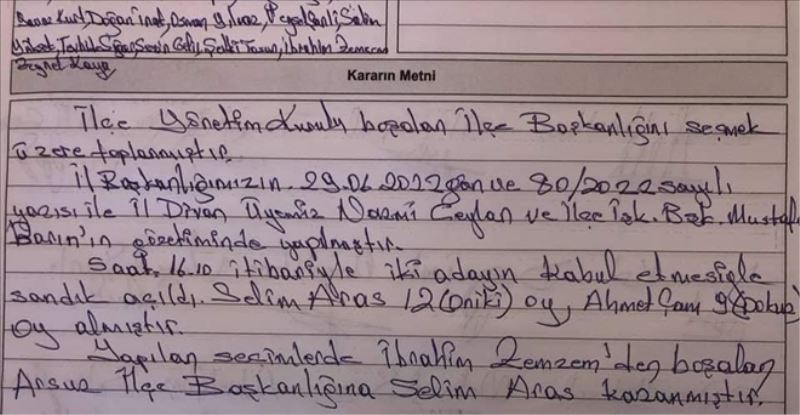 Kurt, Doğan İnat, Osman Yılmaz, Veysel Şanlı, Selim
Yüksel, Sevin Geliş, İbrahim Zemzem
Zeynel Kaya
Kararın Metni
İlçe Yönetim Kurulu boşalan İlçe Başkanlığını seçmek
üzere toplanmıştır.
İl Başkanlığımızın 29.06.2022 gün ve 80/2022 sayılı
yazısı ile İl Divan Üyemiz Nazmi Ceylan ve İlçe Teşk. Bşk. Mustafa
Barın'ın gözetiminde yapılmıştır.
Saat 16.10 itibariyle iki adayın kabul etmesiyle
sandık açıldı. Selim Aras 12 (oniki) oy, Ahmet Çam 9 (Dokuz)
oy almıştır.
Yapılan seçimlerde İbrahim Zemzem'den boşalan
Arsuz İlçe Başkanlığına Selim Aras kazanmıştır.